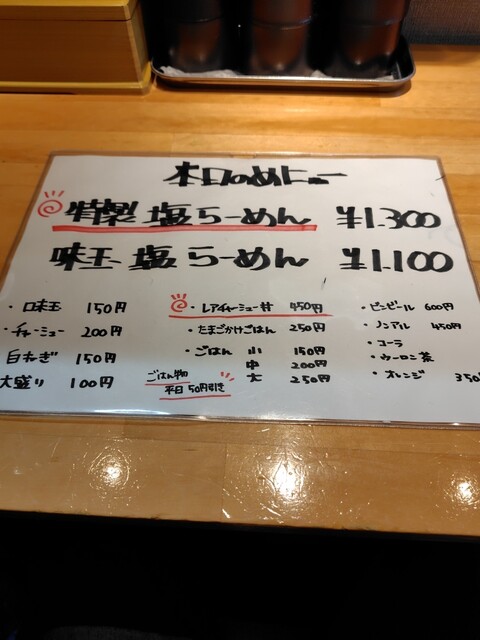 本日のめにゅー
特製 塩らーめん ¥1.300
味玉 塩らーめん ¥1.100
・味玉 150円
・チャーシュー 200円
白ねぎ 150円
大盛り 100円
・レアチャーシュー丼 450円
・たまごかけごはん 250円
・ごはん 小 150円
中 200円
大 250円
ごはん物
平日 50円引き
・ビンビール 600円
・ノンアル 450円
・コーラ
・ウーロン茶
・オレンジ 350